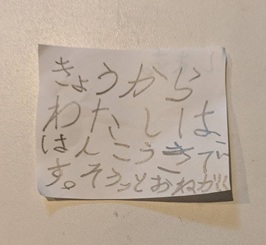 きょうから
わたしは
はんこうきで
す。そうっとおねがい